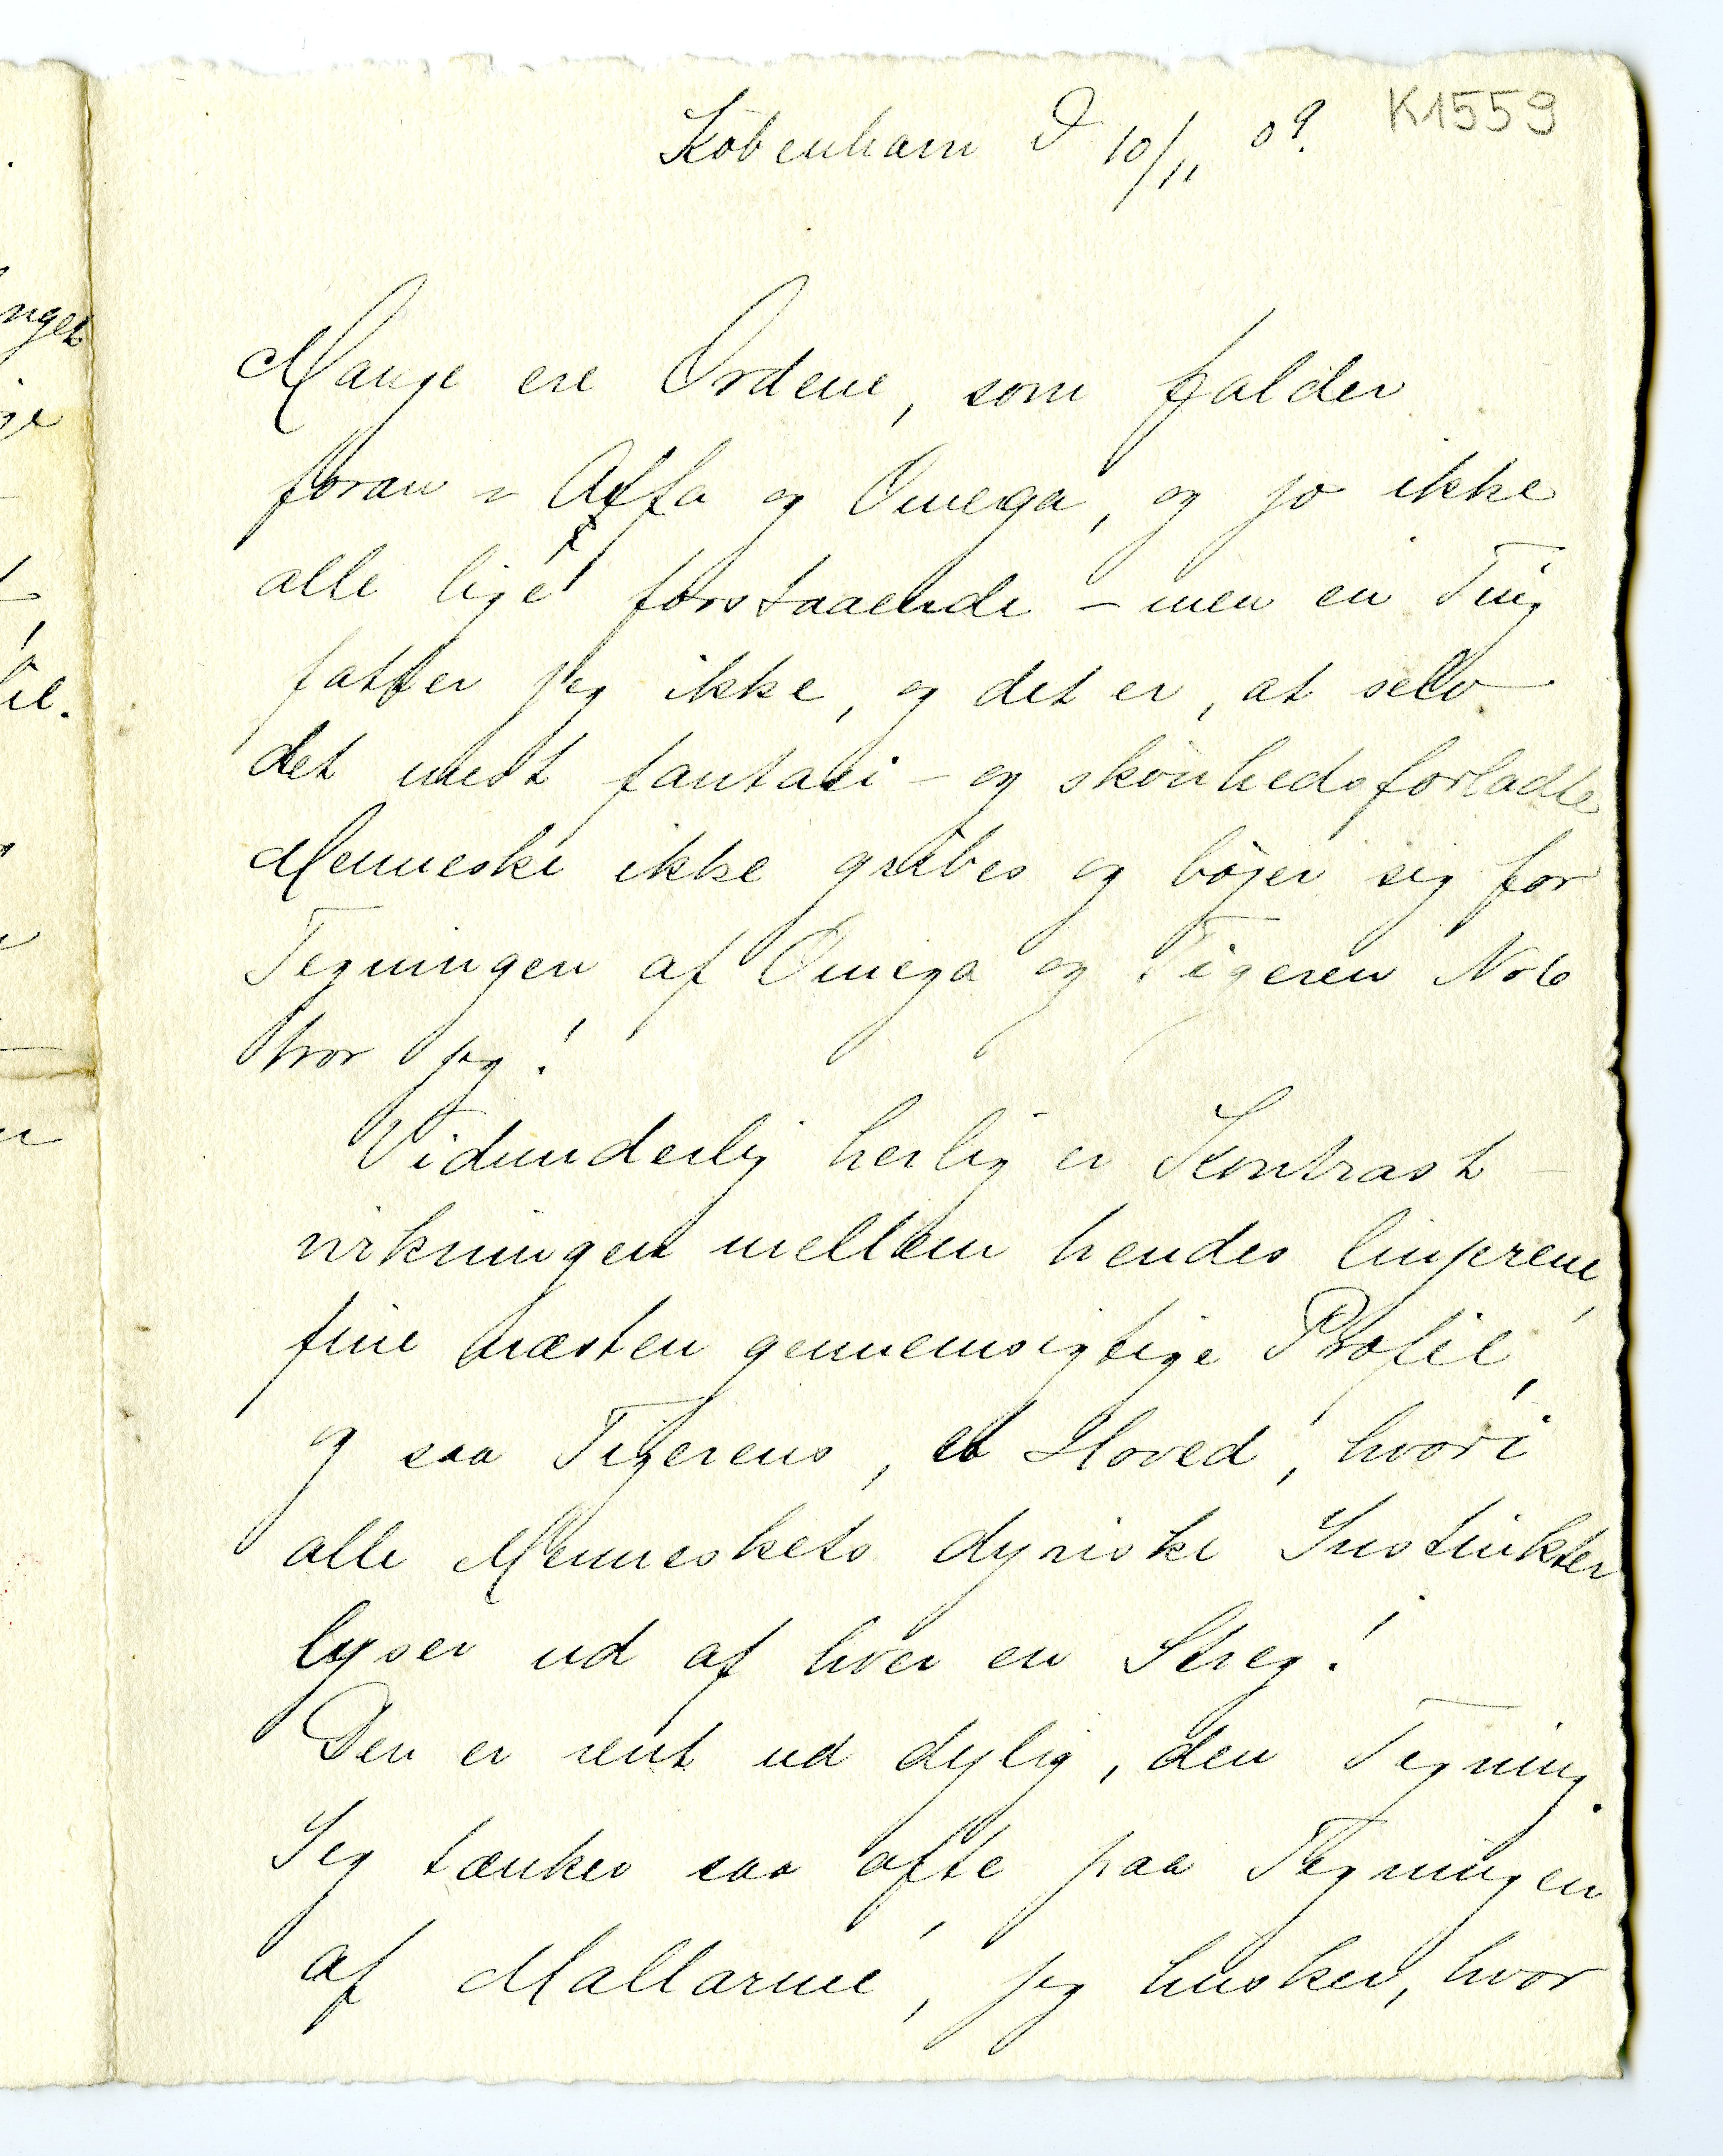 K1559
København D 10/11 09.
Mange ere Ordene, som falder
foran „ Alfa og Omega, og jo ikke
alle lige forstaaende – men en Ting
fatter jeg ikke, og det er, at selv
det mest fantasi- og skönhedsforladte
Menneske ikke gribes og böjer sig for
Tegningen af Omega og Tigeren No 6
tror jeg!
Vidunderlig herlig er Kontrast-
virkningen mellem hendes linjerene,
fine næsten gennemsigtige Profil,
og saa Tigerens, et Hoved, hvori
alle Menneskets dyriske Instinkter
lyser ud af hver en Streg!
Den er rent ud dylig, den Tegning.
Jeg tænker saa ofte paa Tegningen
af Mallarmé, jeg husker, hvor